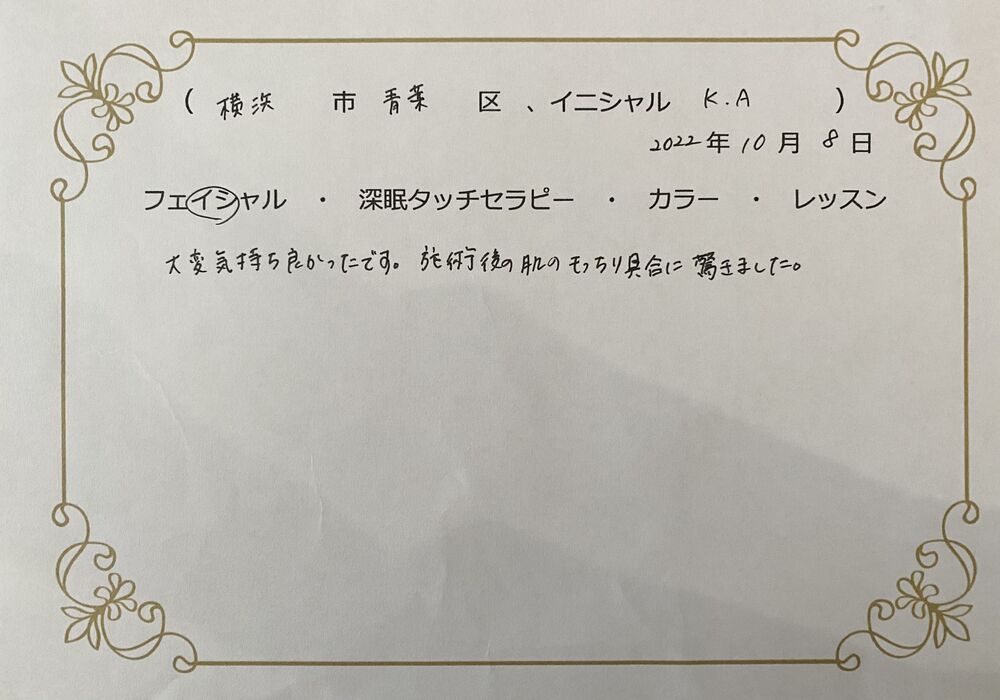 ( 横浜 市 青葉 区 、イニシャル K.A )
2022年 10月 8日
フェイシャル ・ 深眠タッチセラピー ・ カラー ・ レッスン
大変気持ち良かったです。施術後の肌のもっちり具合に驚きました。